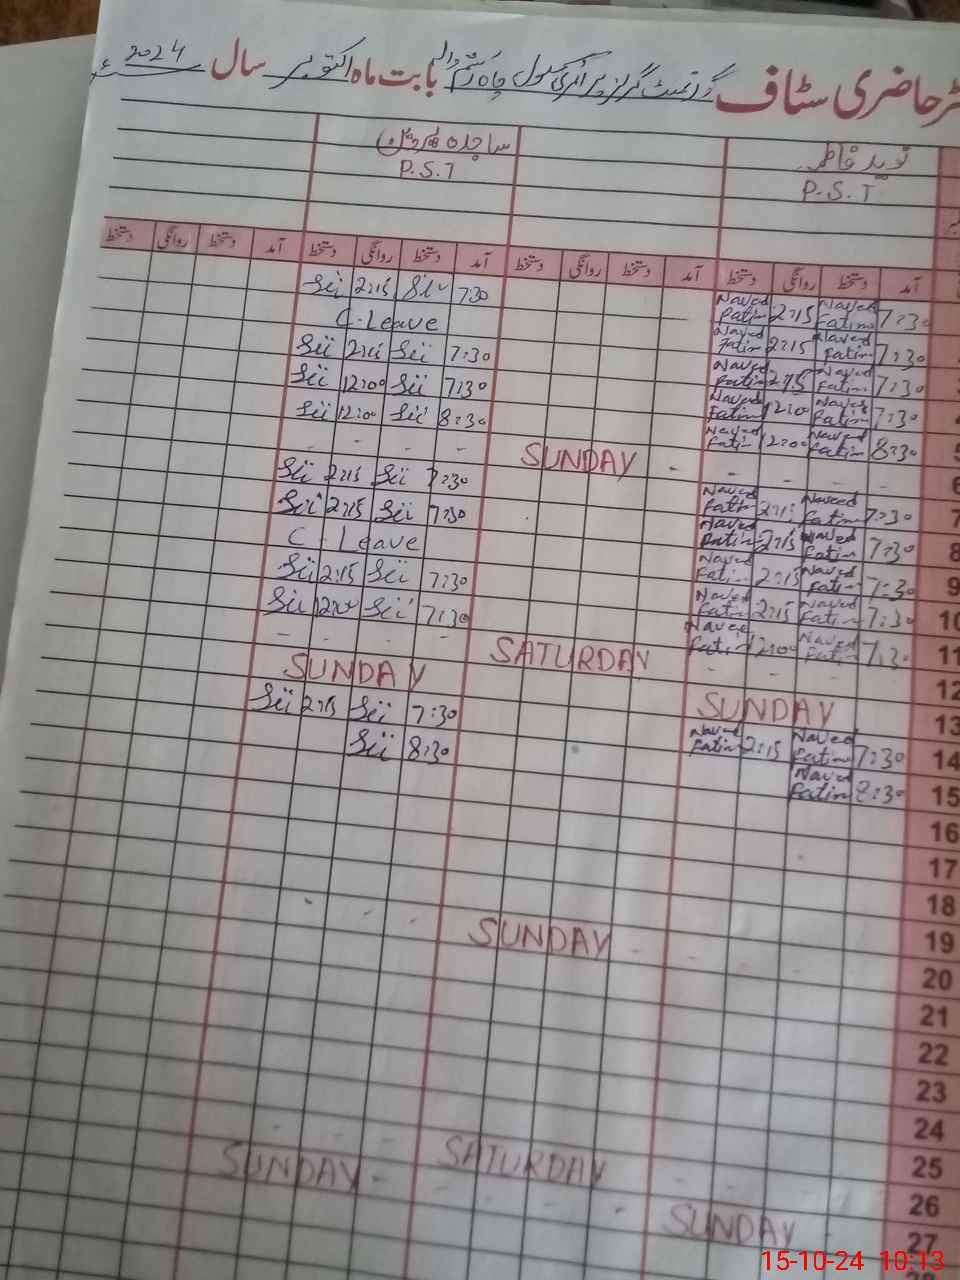 رجسٹر حاضری سٹاف گورنمنٹ گرلز پرائمری سکول چاہ رستم والہ بابت ماہ اکتوبر سال 2024
نوید فاطمہ ساجدہ
P.S.T P.S.T
آمد دستخط روانگی دستخط آمد دستخط روانگی دستخط آمد دستخط روانگی دستخط آمد دستخط روانگی دستخط
7:30 Naved Fatim 2:15 Naved Fatim 7:30 2:15
7:30 Naved Fatim 2:15 Naved Fatim C-Leave
7:30 Naved Fatim 2:15 Naved Fatim 7:30 2:15
7:30 Naved Fatim 12:00 Naved Fatim 7:30 12:00
5 8:30 Naved Fatim 12:00 Naved Fatim 8:30 12:00
6 SUNDAY
7 7:30 Naveed Fatim 2:15 Naved Fatim 7:30 2:15
8 7:30 Naved Fatim 2:15 Naved Fatim 7:30 2:15
9 7:30 Naved Fatim 2:15 Naved Fatim C-Leave
10 7:30 Naved Fatim 2:15 Naved Fatim 7:30 2:15
11 7:30 Naved Fatim 12:00 Naveed Fatim 7:30 12:00
12 SATURDAY
13 SUNDAY SUNDAY
14 7:30 Naved Fatim 2:15 Naved Fatim 7:30 2:15
15 8:30 Naved Fatim 8:30
16
17
18
19
20 SUNDAY
21
22
23
24
25
26 SATURDAY
27 SUNDAY SUNDAY
15-10-24 10:13